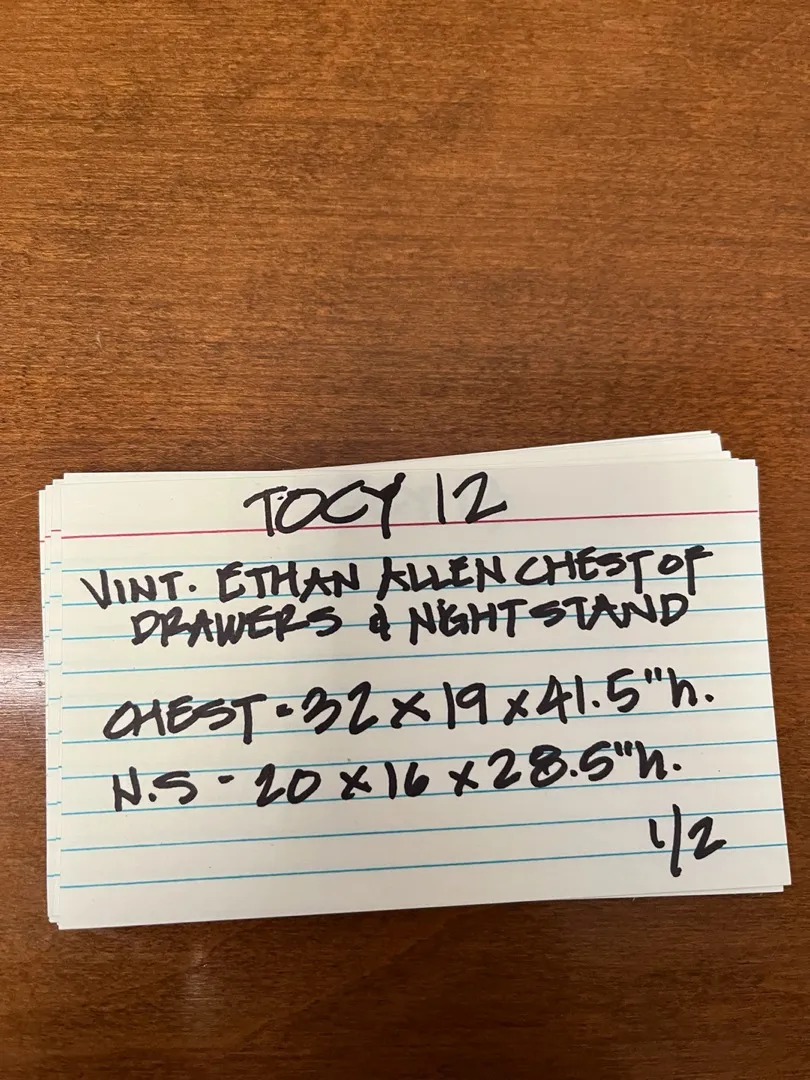 TOCY 12
VINT. ETHAN ALLEN CHEST OF
DRAWERS & NIGHT STAND
CHEST - 32 x 19 x 41.5"h.
N.S - 20 x 16 x 28.5"h.
1/2